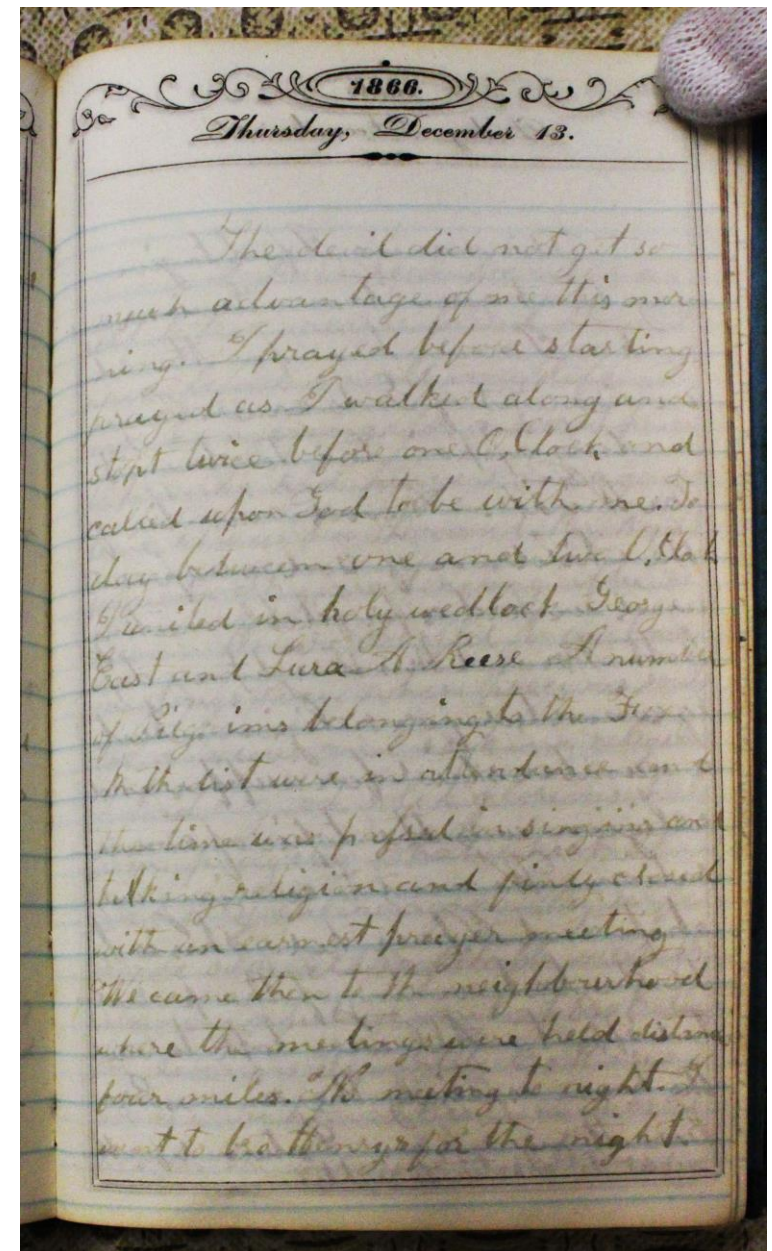 1866.
Thursday, December 13.
The devil did not get so
much advantage of me this mor
ning. I prayed before starting
prayed as I walked along and
stopt twice before one O,Clock and
called upon God to be with me. To
day between one and two O,Clock
I united in holy wedlock George
East and Lura A Reese A number
of Pilgrims belonging to the Free
Methodist were in attendance and
the time was passed in singing and
talking religion and finly closed
with an earnest prayer meeting
We came then to the neighbourhood
where the meetings were held distance
four miles. No meeting to night. I
went to for the night.